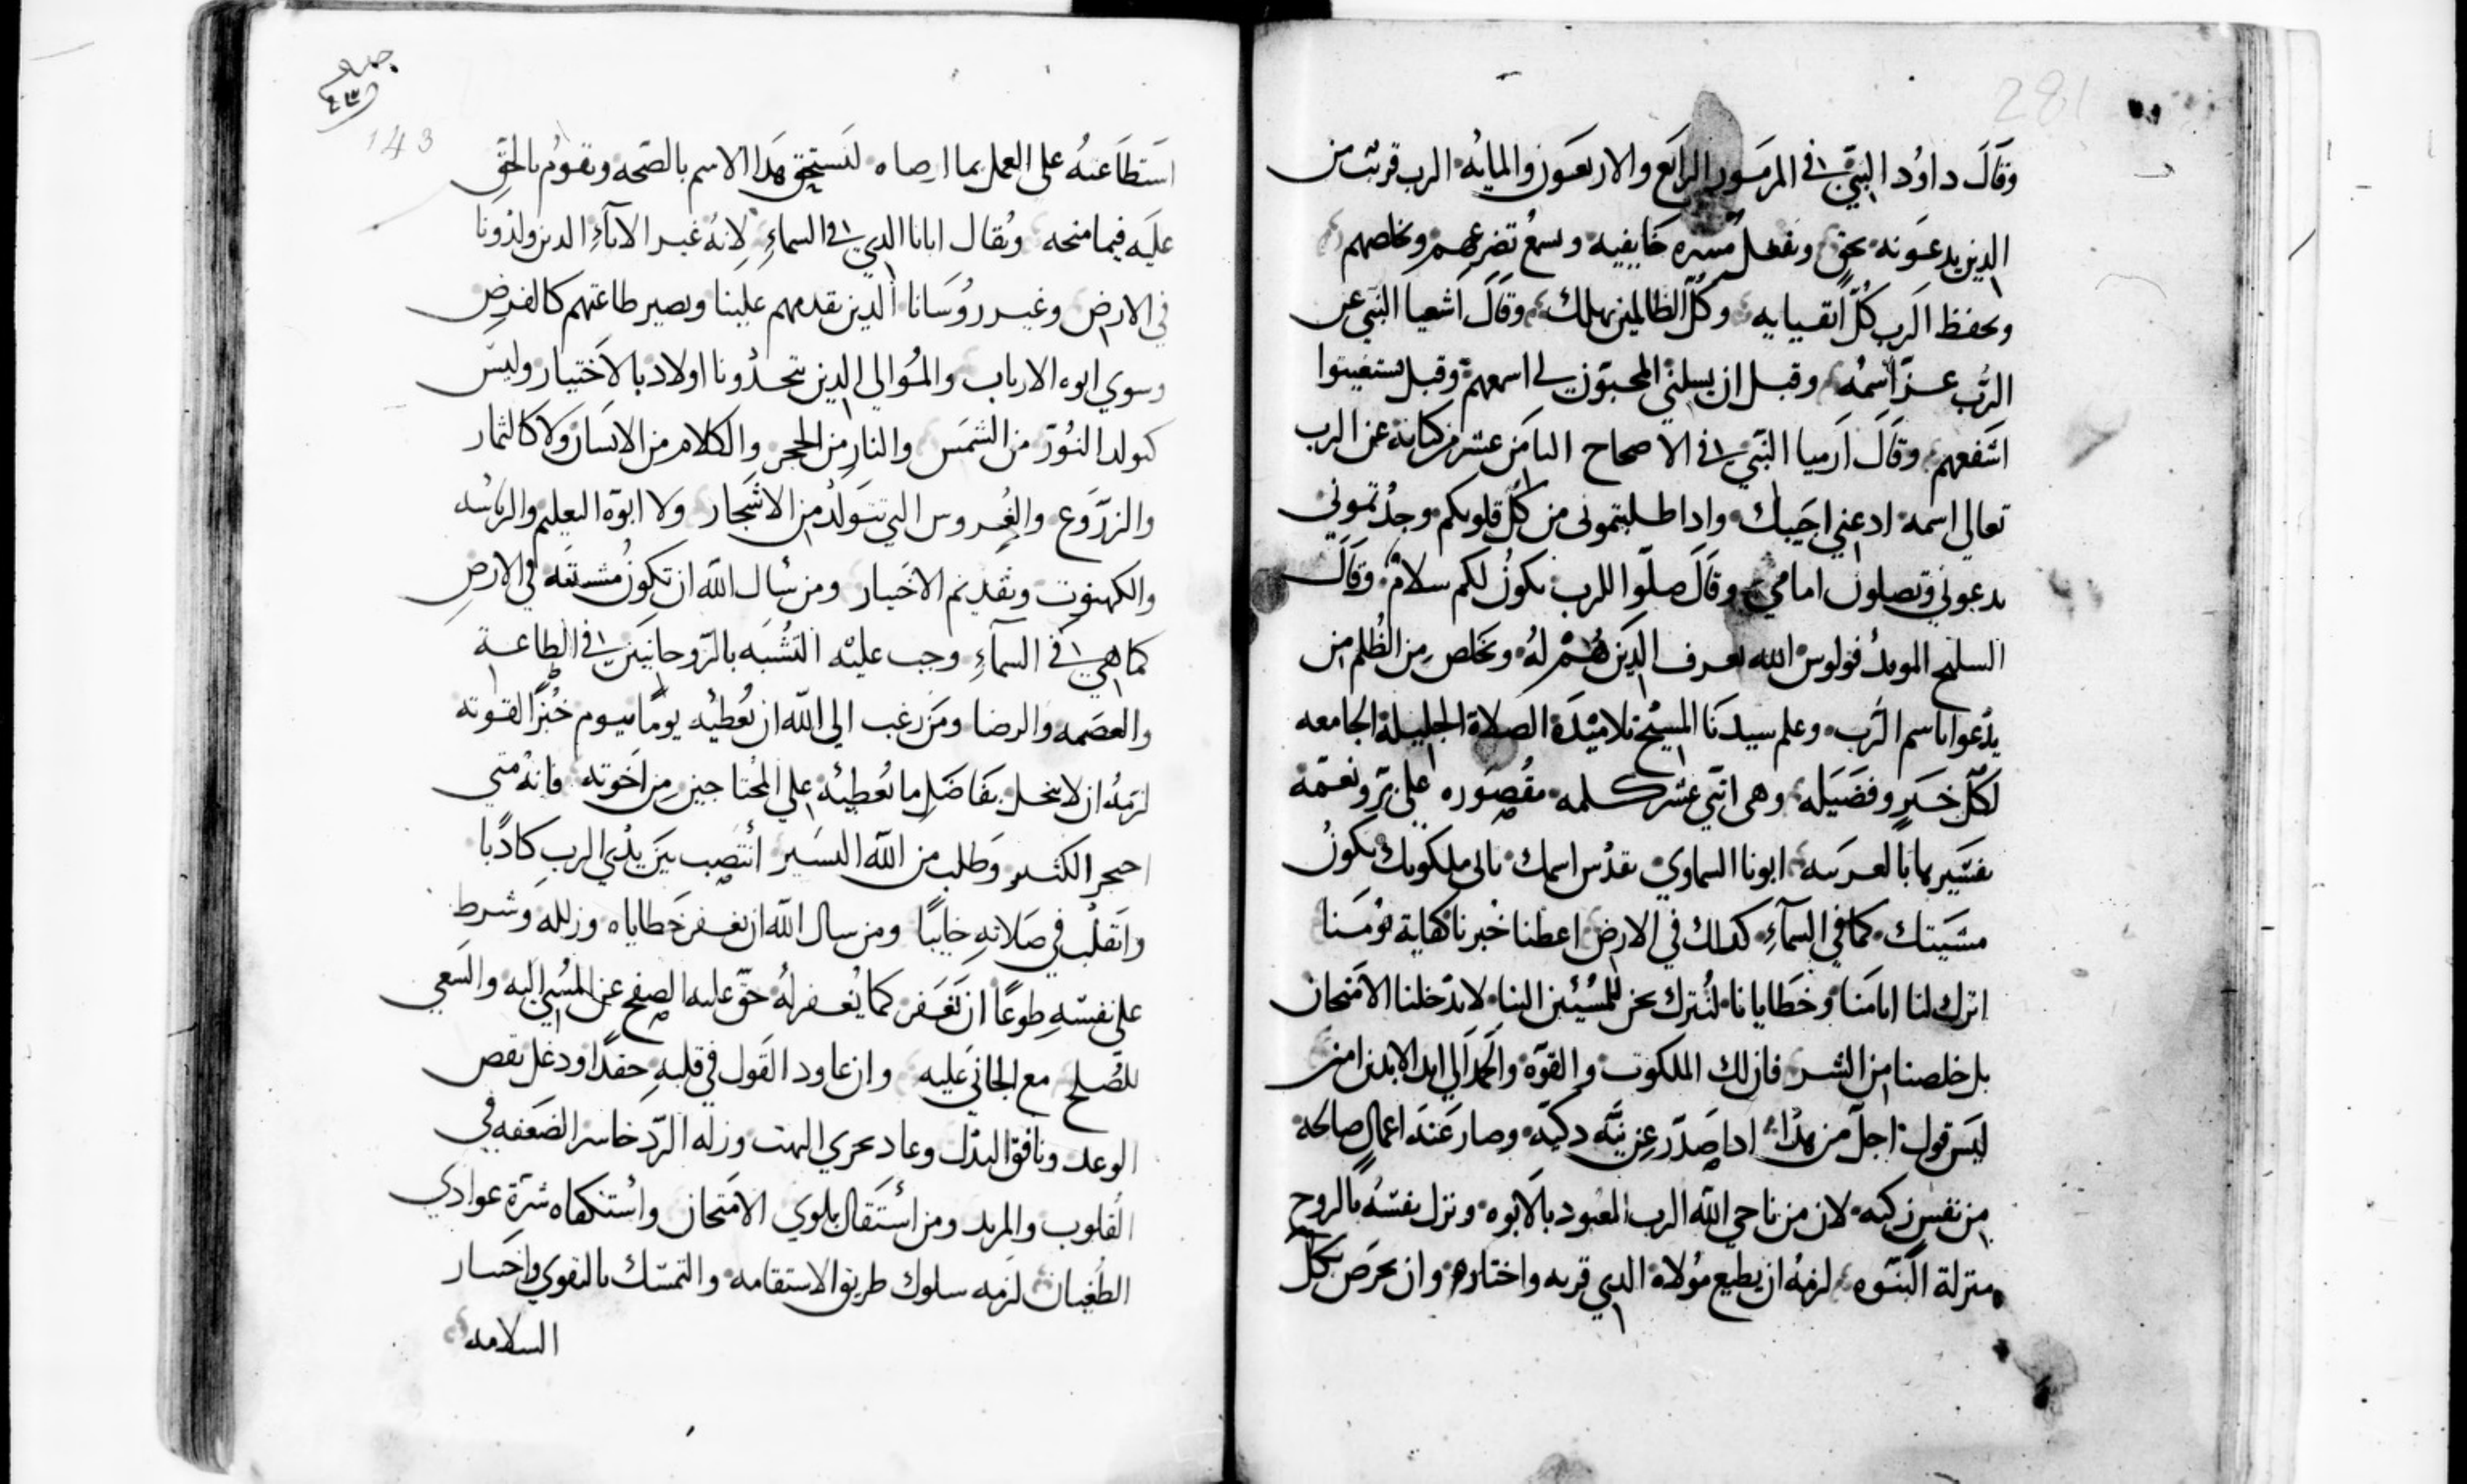 281
وقال داود النبي في المزمور الرابع والاربعون والمايه الرب قريب من
الدين يدعونه بحق ويفعل مسره خايفيه ويسمع تضرعهم ويخلصهم
ويحفظ الرب كل اتقيايه وكل الظالمين يهلك وقال اشعيا النبي عن
الرب عز اسمه وقبل ان يسلني المحبون لي اسمعهم وقبل يستغيثوا
اشفعهم وقال ارميا النبي في الاصحاح الثامن عشر من كتابه عن الرب
تعالى اسمه ادعني اجيبك وادا طلبتموني من كل قلوبكم وجدتموني
يدعوني ويصلون امامي وقال صلوا للرب يكون لكم سلام وقال
السليح المويد فولوس الله يعرف الدين هم له ويخلص من الظلم من
يدعوا باسم الرب وعلم سيدنا المسيح تلاميذه الصلاة الجليلة الجامعه
لكل خير وفضيله وهي اثني عشر كلمه مقصوره على بر ونعمة
تفسيرها بالعربيه ابونا السماوي يقدس اسمك تاتي ملكوتك يكون
مشيتك كما في السمآء كدلك في الارض اعطنا خبزنا كفاية يومنا
اترك لنا اثامنا وخطايانا لنترك نحن للمسيئين الينا لا تدخلنا الامتحان
بل خلصنا من الشر فان لك الملكوت والقوه والحمد الى ابد الابدين امين
ليس قول اجل من هدا ادا صدر عن نيه دكيه وصار عند اعمال صالحه
من نفس زكيه لان من ناجي الله الرب المعبود بالابوه ونزل نفسه بالروح
منزلة البنوه لزمه ان يطيع مولاه الدي قربه واختاره وان يحرص بكل
143
استطاعته على العمل بما ارصاه ليستحق هدا الاسم بالصحه ويقوم بالحق
عليه فيما منحه ويقال ابانا الدي في السماء لانه غير الابآء الدين ولدونا
في الارض وغير روسانا الدين يقدمهم علينا ويصير طاعتهم كالفرض
وسوي ابوه الارباب والموالي الدين يتخدونا اولاد بالاختيار وليس
كتولد النور من الشمس والنار من الحجر والكلام من الانسان ولا كالثمار
والزروع والغروس التي تتولد من الاشجار ولا ابوة التعليم والرياسه
والكهنوت وتقديم الاخيار ومن سال الله ان تكون مشيته في الارض
كما هي في السمآء وجب عليه التشبه بالروحانيين في الطاعة
والعصمه والرضا ومن رغب الى الله ان يعطيه يوما بيوم خبزا لقوته
لزمه ان لا يبخل بفاضل ما يعطيه على المحتاجين من اخوته فانه متي
احجر الكثير وطلب من الله اليسير انتصب بين يدي الرب كادبا
وانقلب في صلاته خايبا ومن سال الله ان يغفر خطاياه وزلله وشرط
على نفسه طوعا ان يغفر كما يغفر له حق عليه الصفح عن المسي اليه والسعي
للصلح مع الجاني عليه وان عاود القول في قلبه حقدا ودغل نقص
الوعد ونافق البدل وعاد بحري البهت وزله الرد خاسر الصفقه في
القلوب والمريد ومن استقال بلوي الامتحان واستكفاه شرة عوادي
الطغيان لزمه سلوك طريق الاستقامه والتمسك بالتقوي واختيار
السلامه